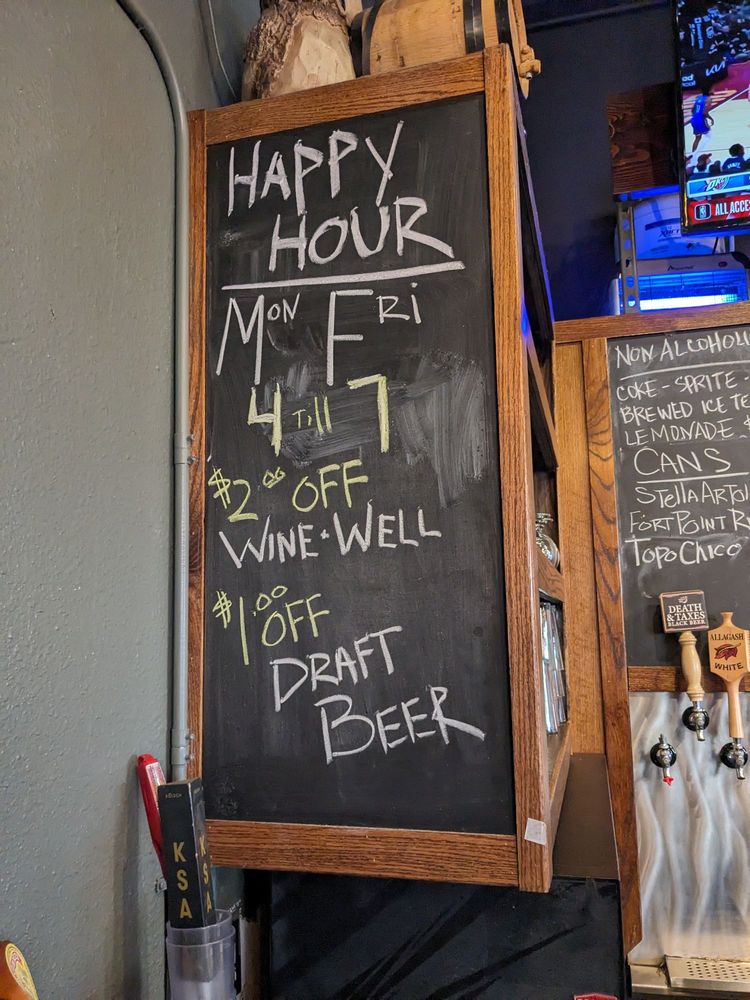 HAPPY
HOUR
MON FRI
4 Till 7
$2.00 OFF
WINE·WELL
$1.00 OFF
DRAFT
BEER
ALL ACCE
NON ALCOHOLI
COKE - SPRITE -
BREWED ICE TE
LEMONADE $
CANS
STELLA ARTOI
FORT POINT R
TOPO CHICO
DEATH
& TAXES
BLACK BEER
ALLAGASH
WHITE
KSA
KSA